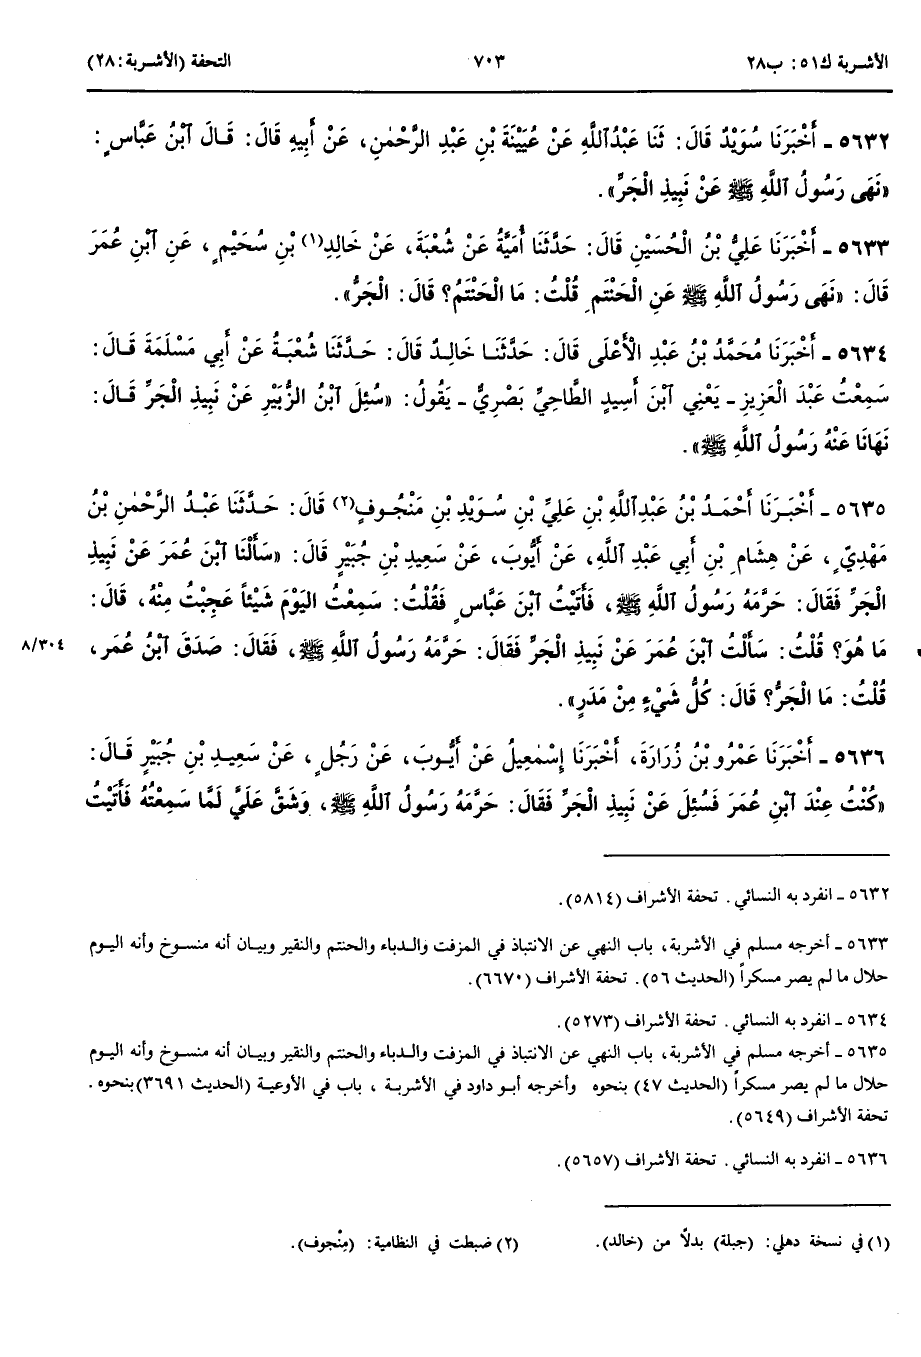 الأشربة ك٥١: ب٢٨ ٧٠٣ التحفة (الأشربة: ٢٨)
٥٦٣٢ ـ أَخْبَرَنَا سُوَيْدٌ قَالَ: ثَنَا عَبْدُاللَّهِ عَنْ عُيَيْنَةَ بْنِ عَبْدِ الرَّحْمٰنِ، عَنْ أَبِيهِ قَالَ: قَالَ ٱبْنُ عَبَّاسٍ:
«نَهَى رَسُولُ ٱللَّهِ ﷺ عَنْ نَبِيذِ الْجَرِّ».
٥٦٣٣ ـ أَخْبَرَنَا عَلِيُّ بْنُ الْحُسَيْنِ قَالَ: حَدَّثَنَا أُمَيَّةُ عَنْ شُعْبَةَ، عَنْ خَالِدِ(١) بْنِ سُحَيْمٍ، عَنِ ٱبْنِ عُمَرَ
قَالَ: «نَهَى رَسُولُ ٱللَّهِ ﷺ عَنِ الْحَنْتَمِ قُلْتُ: مَا الْحَنْتَمُ؟ قَالَ: الْجَرُّ».
٥٦٣٤ ـ أَخْبَرَنَا مُحَمَّدُ بْنُ عَبْدِ الْأَعْلَى قَالَ: حَدَّثَنَا خَالِدٌ قَالَ: حَدَّثَنَا شُعْبَةُ عَنْ أَبِي مَسْلَمَةَ قَالَ:
سَمِعْتُ عَبْدَ الْعَزِيزِ ـ يَعْنِي ٱبْنَ أَسِيدٍ الطَّاحِيَّ بَصْرِيٌّ ـ يَقُولُ: «سُئِلَ ٱبْنُ الزُّبَيْرِ عَنْ نَبِيذِ الْجَرِّ قَالَ:
نَهَانَا عَنْهُ رَسُولُ ٱللَّهِ ﷺ».
٥٦٣٥ ـ أَخْبَرَنَا أَحْمَدُ بْنُ عَبْدِٱللَّهِ بْنِ عَلِيِّ بْنِ سُوَيْدِ بْنِ مَنْجُوفٍ(٢) قَالَ: حَدَّثَنَا عَبْدُ الرَّحْمٰنِ بْنُ
مَهْدِيٍّ، عَنْ هِشَامِ بْنِ أَبِي عَبْدِ ٱللَّهِ، عَنْ أَيُّوبَ، عَنْ سَعِيدِ بْنِ جُبَيْرٍ قَالَ: «سَأَلْنَا ٱبْنَ عُمَرَ عَنْ نَبِيذِ
الْجَرِّ فَقَالَ: حَرَّمَهُ رَسُولُ ٱللَّهِ ﷺ، فَأَتَيْتُ ٱبْنَ عَبَّاسٍ فَقُلْتُ: سَمِعْتُ الْيَوْمَ شَيْئاً عَجِبْتُ مِنْهُ، قَالَ:
مَا هُوَ؟ قُلْتُ: سَأَلْتُ ٱبْنَ عُمَرَ عَنْ نَبِيذِ الْجَرِّ فَقَالَ: حَرَّمَهُ رَسُولُ ٱللَّهِ ﷺ، فَقَالَ: صَدَقَ ٱبْنُ عُمَر، ٨/٣٠٤
قُلْتُ: مَا الْجَرُّ؟ قَالَ: كُلُّ شَيْءٍ مِنْ مَدَرٍ».
٥٦٣٦ ـ أَخْبَرَنَا عَمْرُو بْنُ زُرَارَةَ، أَخْبَرَنَا إِسْمٰعِيلُ عَنْ أَيُّوبَ، عَنْ رَجُلٍ، عَنْ سَعِيدِ بْنِ جُبَيْرٍ قَالَ:
«كُنْتُ عِنْدَ ٱبْنِ عُمَرَ فَسُئِلَ عَنْ نَبِيذِ الْجَرِّ فَقَالَ: حَرَّمَهُ رَسُولُ ٱللَّهِ ﷺ، وَشَقَّ عَلَيَّ لَمَّا سَمِعْتُهُ فَأَتَيْتُ
٥٦٣٢ ـ انفرد به النسائي. تحفة الأشراف (٥٨١٤).
٥٦٣٣ ـ أخرجه مسلم في الأشربة، باب النهي عن الانتباذ في المزفت والدباء والحنتم والنقير وبيان أنه منسوخ وأنه اليوم
حلال ما لم يصر مسكراً (الحديث ٥٦). تحفة الأشراف (٦٦٧٠).
٥٦٣٤ ـ انفرد به النسائي. تحفة الأشراف (٥٢٧٣).
٥٦٣٥ ـ أخرجه مسلم في الأشربة، باب النهي عن الانتباذ في المزفت والدباء والحنتم والنقير وبيان أنه منسوخ وأنه اليوم
حلال ما لم يصر مسكراً (الحديث ٤٧) بنحوه وأخرجه أبو داود في الأشربة، باب في الأوعية (الحديث ٣٦٩١)بنحوه.
تحفة الأشراف (٥٦٤٩).
٥٦٣٦ ـ انفرد به النسائي. تحفة الأشراف (٥٦٥٧).
(١) في نسخة دهلي: (جبلة) بدلاً من (خالد). (٢) ضبطت في النظامية: (مِنْجوف).